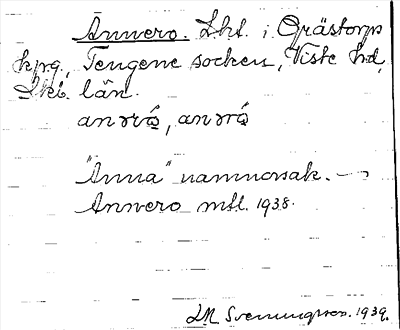 Annero. Lht. i Grästorps
kpg, Tengene socken, Viste hd,
Skbg. län.
"Anna" namnorsak. —
Annero mtl. 1938.
LM Svenningsson. 1939.